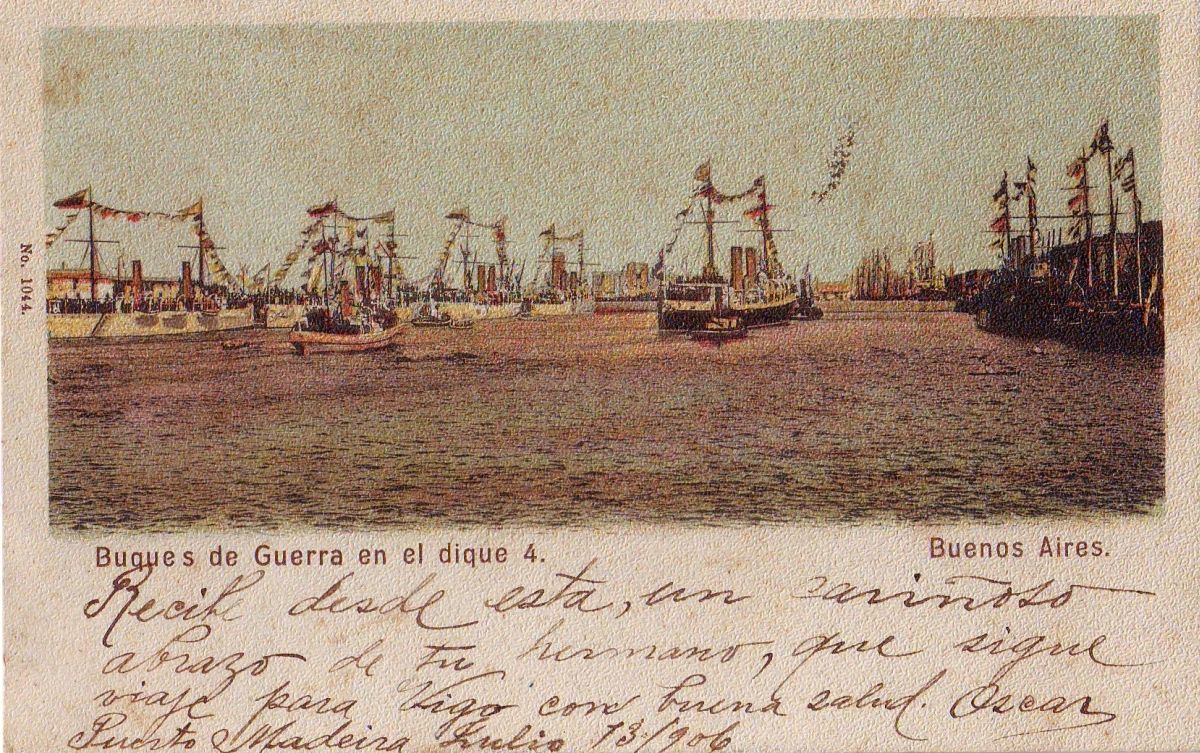 No. 1044.
Buques de Guerra en el dique 4.
Buenos Aires.
Recibe desde esta, un cariñoso
abrazo de tu hermano, que sigue
viaje para Vigo con buena salud. Oscar
Puerto Madeira Julio 13/906